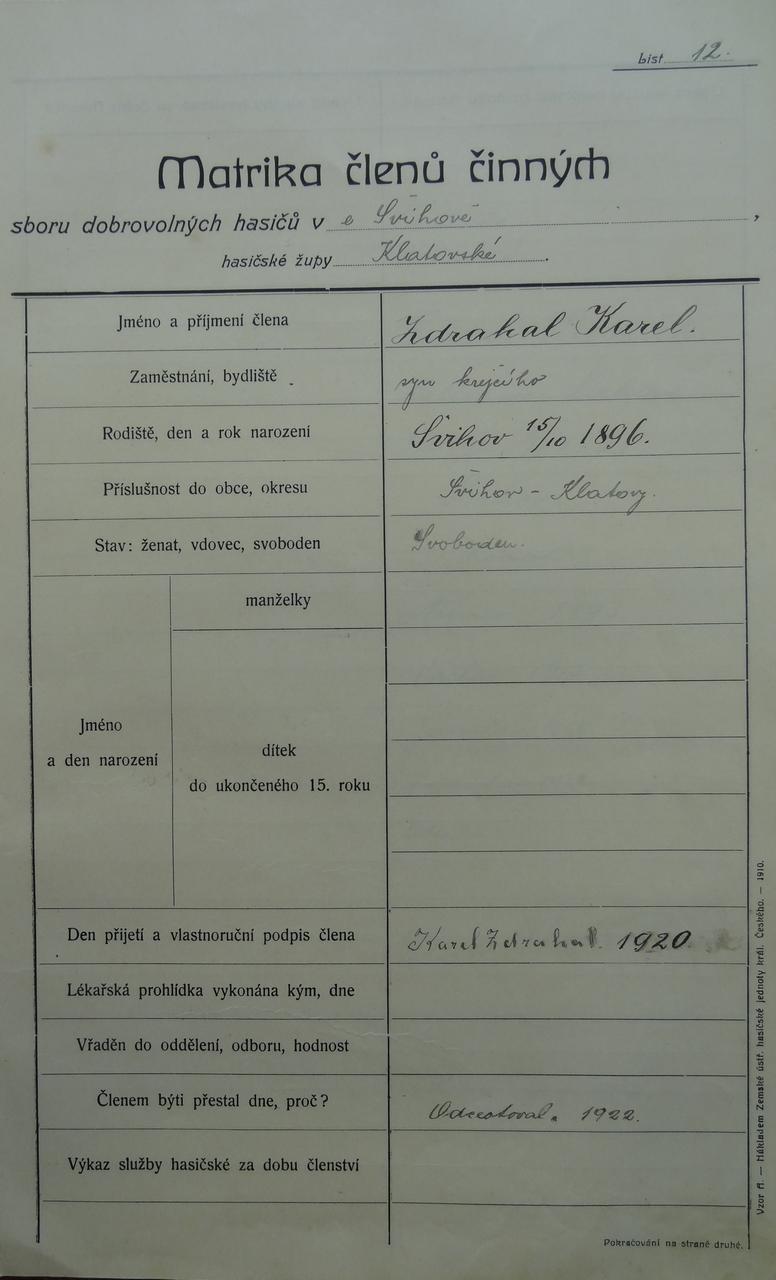 List 12.
Matrika členů činných
sboru dobrovolných hasičů v e Švihově,
hasičské župy Klatovské.
Jméno a příjmení člena Zdrahal Karel.
Zaměstnání, bydliště syn krejčího
Rodiště, den a rok narození Švihov 15/10 1896.
Příslušnost do obce, okresu Švihov - Klatovy.
Stav: ženat, vdovec, svoboden Svoboden.
manželky
Jméno
a den narození
dítek
do ukončeného 15. roku
Den přijetí a vlastnoruční podpis člena Karel Zdrahal. 1920
Lékařská prohlídka vykonána kým, dne
Vřaděn do oddělení, odboru, hodnost
Členem býti přestal dne, proč? 1922.
Výkaz služby hasičské za dobu členství
Pokračování na straně druhé.
Vzor A. — Nákladem Zemské ústř. hasičské jednoty král. Českého. — 1910.